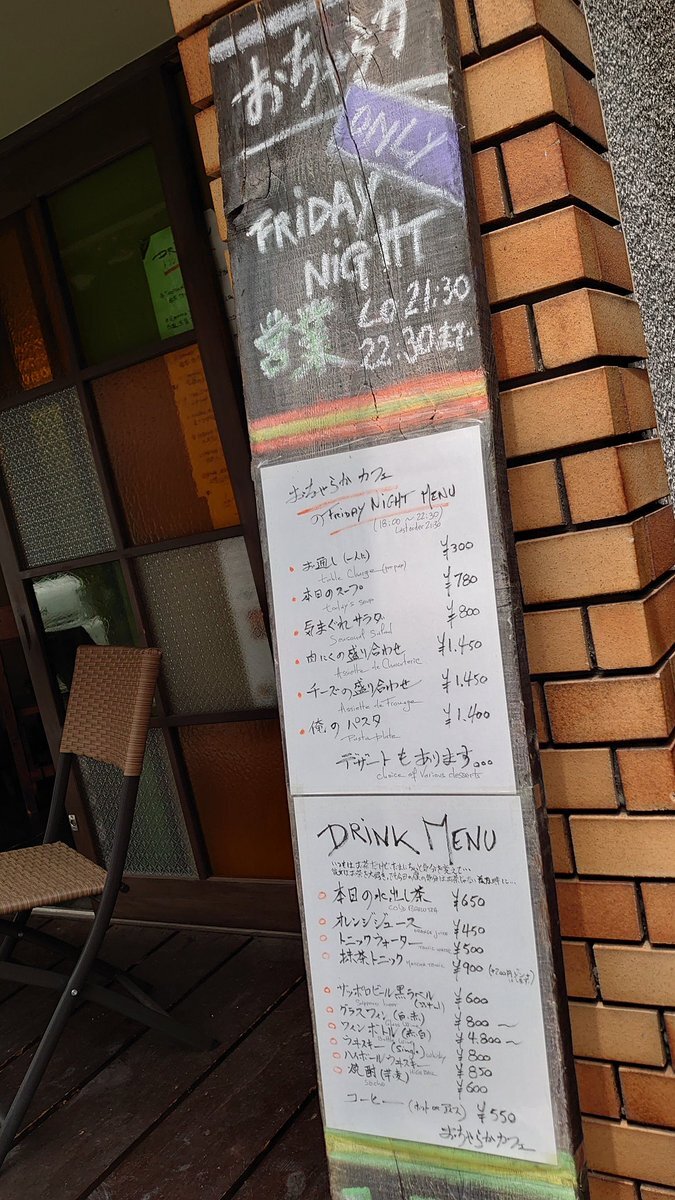 おちゃらか
ONLY
FRIDAY
NIGHT
営業 LO 21:30
22:30まで
おちゃらかカフェ
の FRIDAY NIGHT MENU
(18:00 ～ 22:30)
Last order 21:30
お通し (一人に) ¥300
Table Charge (per per)
本日のスープ ¥780
today's soup
気まぐれサラダ ¥800
Seasonal Salad
肉にくの盛り合わせ ¥1.450
Assiette de Charcuterie
チーズの盛り合わせ ¥1.450
Assiette de Fromage
俺のパスタ ¥1.400
Pasta plate
デザートもあります...
choice of various desserts
DRINK MENU
本日の水出し茶 ¥650
COLD BREW TEA
オレンジジュース ORANGE JUICE ¥450
トニックウォーター TONIC WATER ¥500
抹茶トニック MATCHA TONIC ¥900
サッポロビール黒ラベル ¥600
グラスワイン (白.赤) ¥800～
ワインボトル (赤.白) ¥4.800～
ウヰスキー (Single) ¥800
ハイボールウヰスキー ¥850
HIGH BALL
焼酎 ¥600
コーヒー (ホット or アイス) ¥550
おちゃらかカフェ